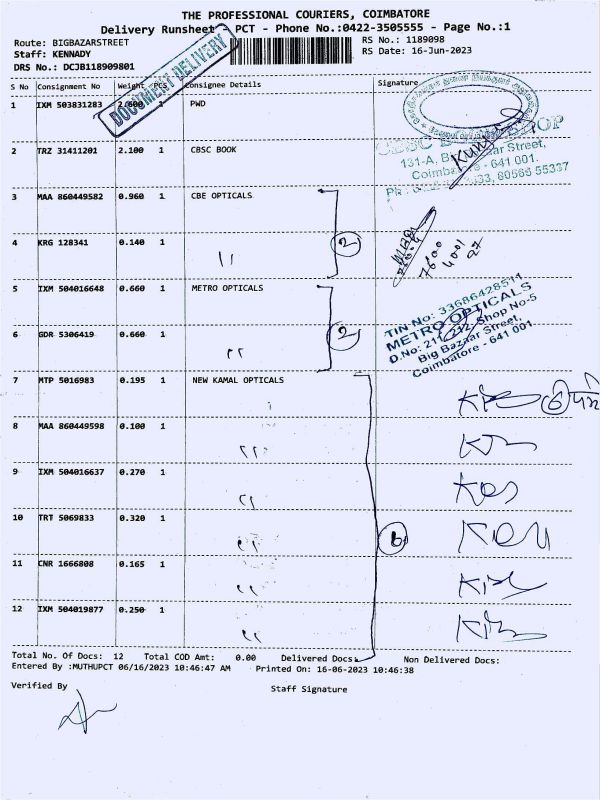 THE PROFESSIONAL COURIERS, COIMBATORE
Delivery Runsheet - PCT - Phone No.:0422-3505555 - Page No.:1
Route: BIGBAZARSTREET
Staff: KENNADY
DRS No.: DCJB118909801
RS No.: 1189098
RS Date: 16-Jun-2023
DOCUMENT DELIVERY
S No Consignment No Weight PCS Consignee Details Signature
1 IXM 503831283 2.600 1 PWD
2 TRZ 31411201 2.100 1 CBSC BOOK
CBSC BOOK SHOP
131-A, Big Bazaar Street,
Coimbatore - 641 001.
33, 80566 55337
3 MAA 860449582 0.960 1 CBE OPTICALS
2
4 KRG 128341 0.140 1 "
5 IXM 504016648 0.660 1 METRO OPTICALS
2
6 GDR 5306419 0.660 1 "
TIN No: 33686428511
METRO OPTICALS
D.No: 211-212, Shop No-5
Big Bazaar Street,
Coimbatore - 641 001
7 MTP 5016983 0.195 1 NEW KAMAL OPTICALS
8 MAA 860449598 0.100 1 "
9 IXM 504016637 0.270 1 "
10 TRT 5069833 0.320 1 "
6
11 CNR 1666808 0.165 1 "
12 IXM 504019877 0.250 1 "
Total No. Of Docs: 12 Total COD Amt: 0.00 Delivered Docs: Non Delivered Docs:
Entered By :MUTHUPCT 06/16/2023 10:46:47 AM Printed On: 16-06-2023 10:46:38
Verified By
Staff Signature